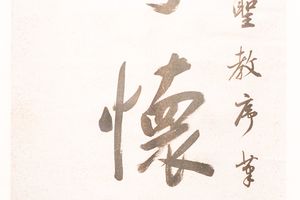 聖教序筆
懷